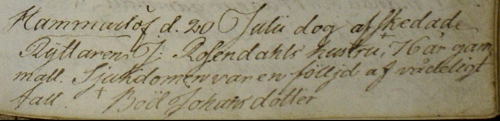 Hammarlöf d. 20 Julii dog afskedade
Ryttaren J: Rosendahls hustru, 76 år gam
mall. Sjukdomen var en föllijd af vådeligt
fall. + Boël Johans dotter